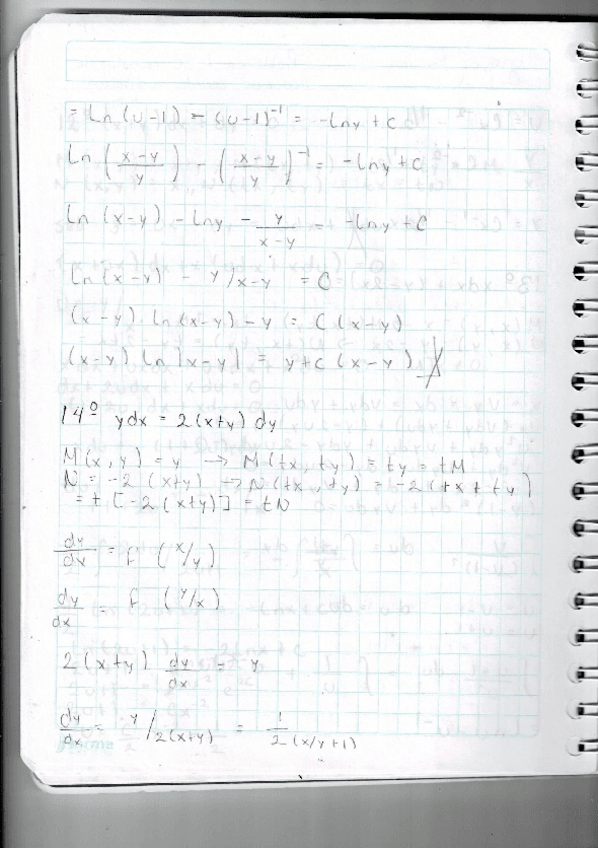 = Ln (u-1) - (u-1)⁻¹ = -Lny + C
Ln (x-y / y) - (x-y / y)⁻¹ = -Lny + C
Ln (x-y) - Lny - y / x-y = -Lny + C
Ln (x-y) - y/x-y = C
(x-y) Ln (x-y) - y = C (x-y)
(x-y) ln |x-y| = y + c (x-y)
14º ydx = 2(x+y) dy
M(x,y) = y → M(tx, ty) = ty = tM
N = -2 (x+y) → N(tx, ty) = -2 (tx + ty)
= t [-2 (x+y)] = tN
dy/dx = f (x/y)
dy/dx = f (y/x)
2(x+y) dy/dx = y
dy/dx = y/2(x+y) = 1 / 2(x/y+1)